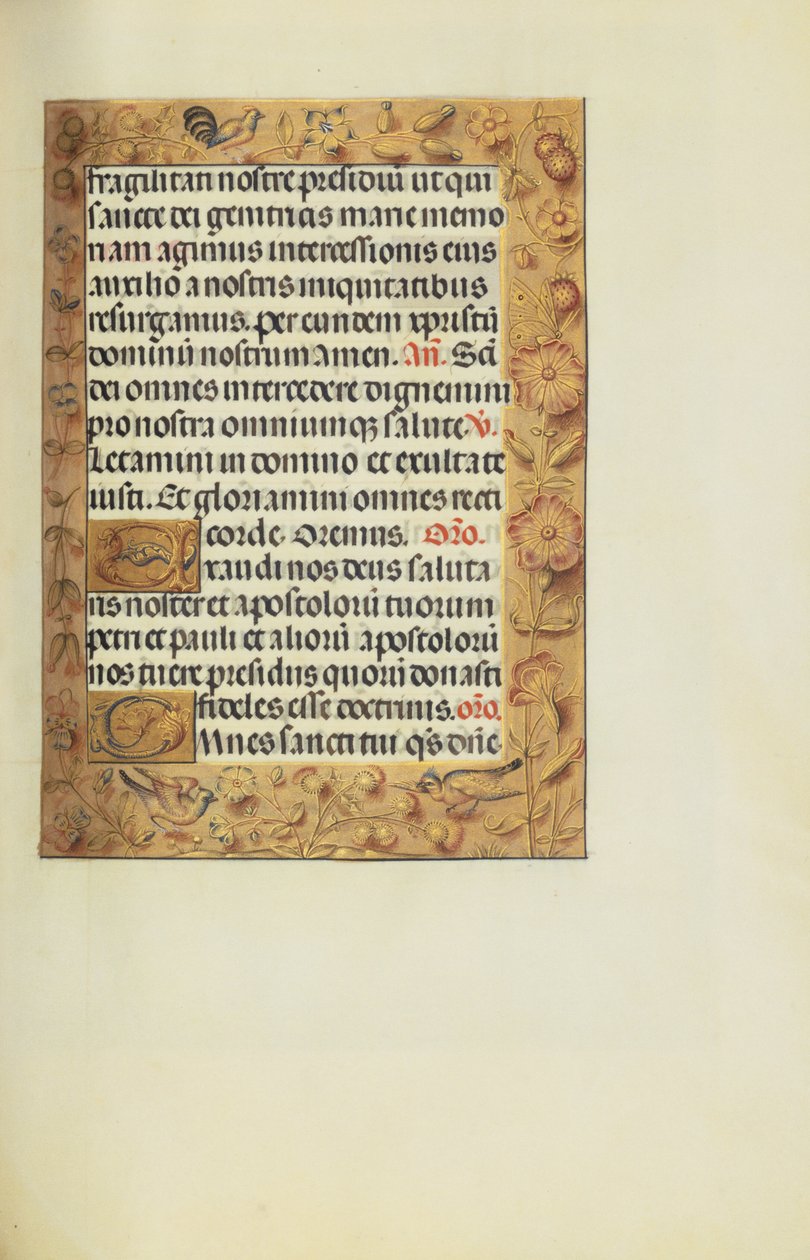 fragilitati nostre presidiū ut qui
sancte dei genitricis marie memo
riam agimus intercessionis eius
auxiliō a nostris iniquitatibus
resurgamus. per eundem xpristū
dominū nostrum amen. An̄. Scī
dei omnes intercedere dignemini
pro nostra omniumqꝫ salute. V̄.
Letamini in domino et exultate
iusti. Et gloriamini omnes recti
corde. Oremus. Or̄o.
Exaudi nos deus saluta
ris noster et apostolorū tuorum
petri et pauli et aliorū apostolorū
nos tuere presidiis quorū donasti
fideles esse doctrinis. or̄o.
OMnes sancti tui qs̄ dn̄e